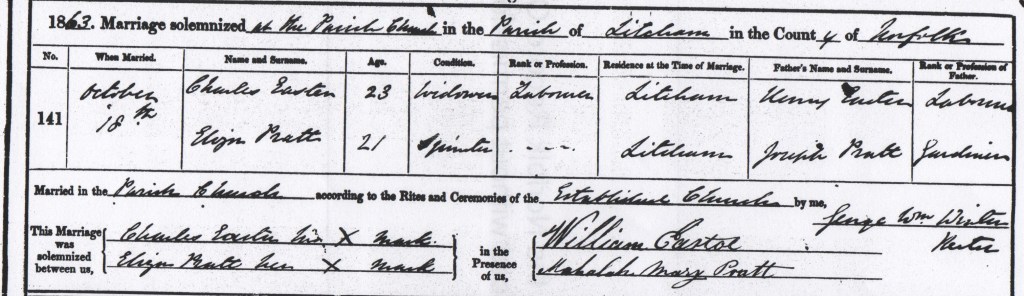 1863. Marriage solemnized at the Parish Church in the Parish of Litcham in the County of Norfolk
No. When Married. Name and Surname. Age. Condition. Rank or Profession. Residence at the Time of Marriage. Father's Name and Surname. Rank or Profession of Father.
141 October 18th Charles Easter 23 Widower Labourer Litcham Henry Easter Labourer
Eliza Pratt 21 Spinster ---- Litcham Joseph Pratt Gardiner
Married in the Parish Church according to the Rites and Ceremonies of the Established Church by me, George Wm Winter
Rector
This Marriage was solemnized between us, Charles Easter his X mark. in the Presence of us, William Eastoe
Eliza Pratt her X mark Mahalah Mary Pratt